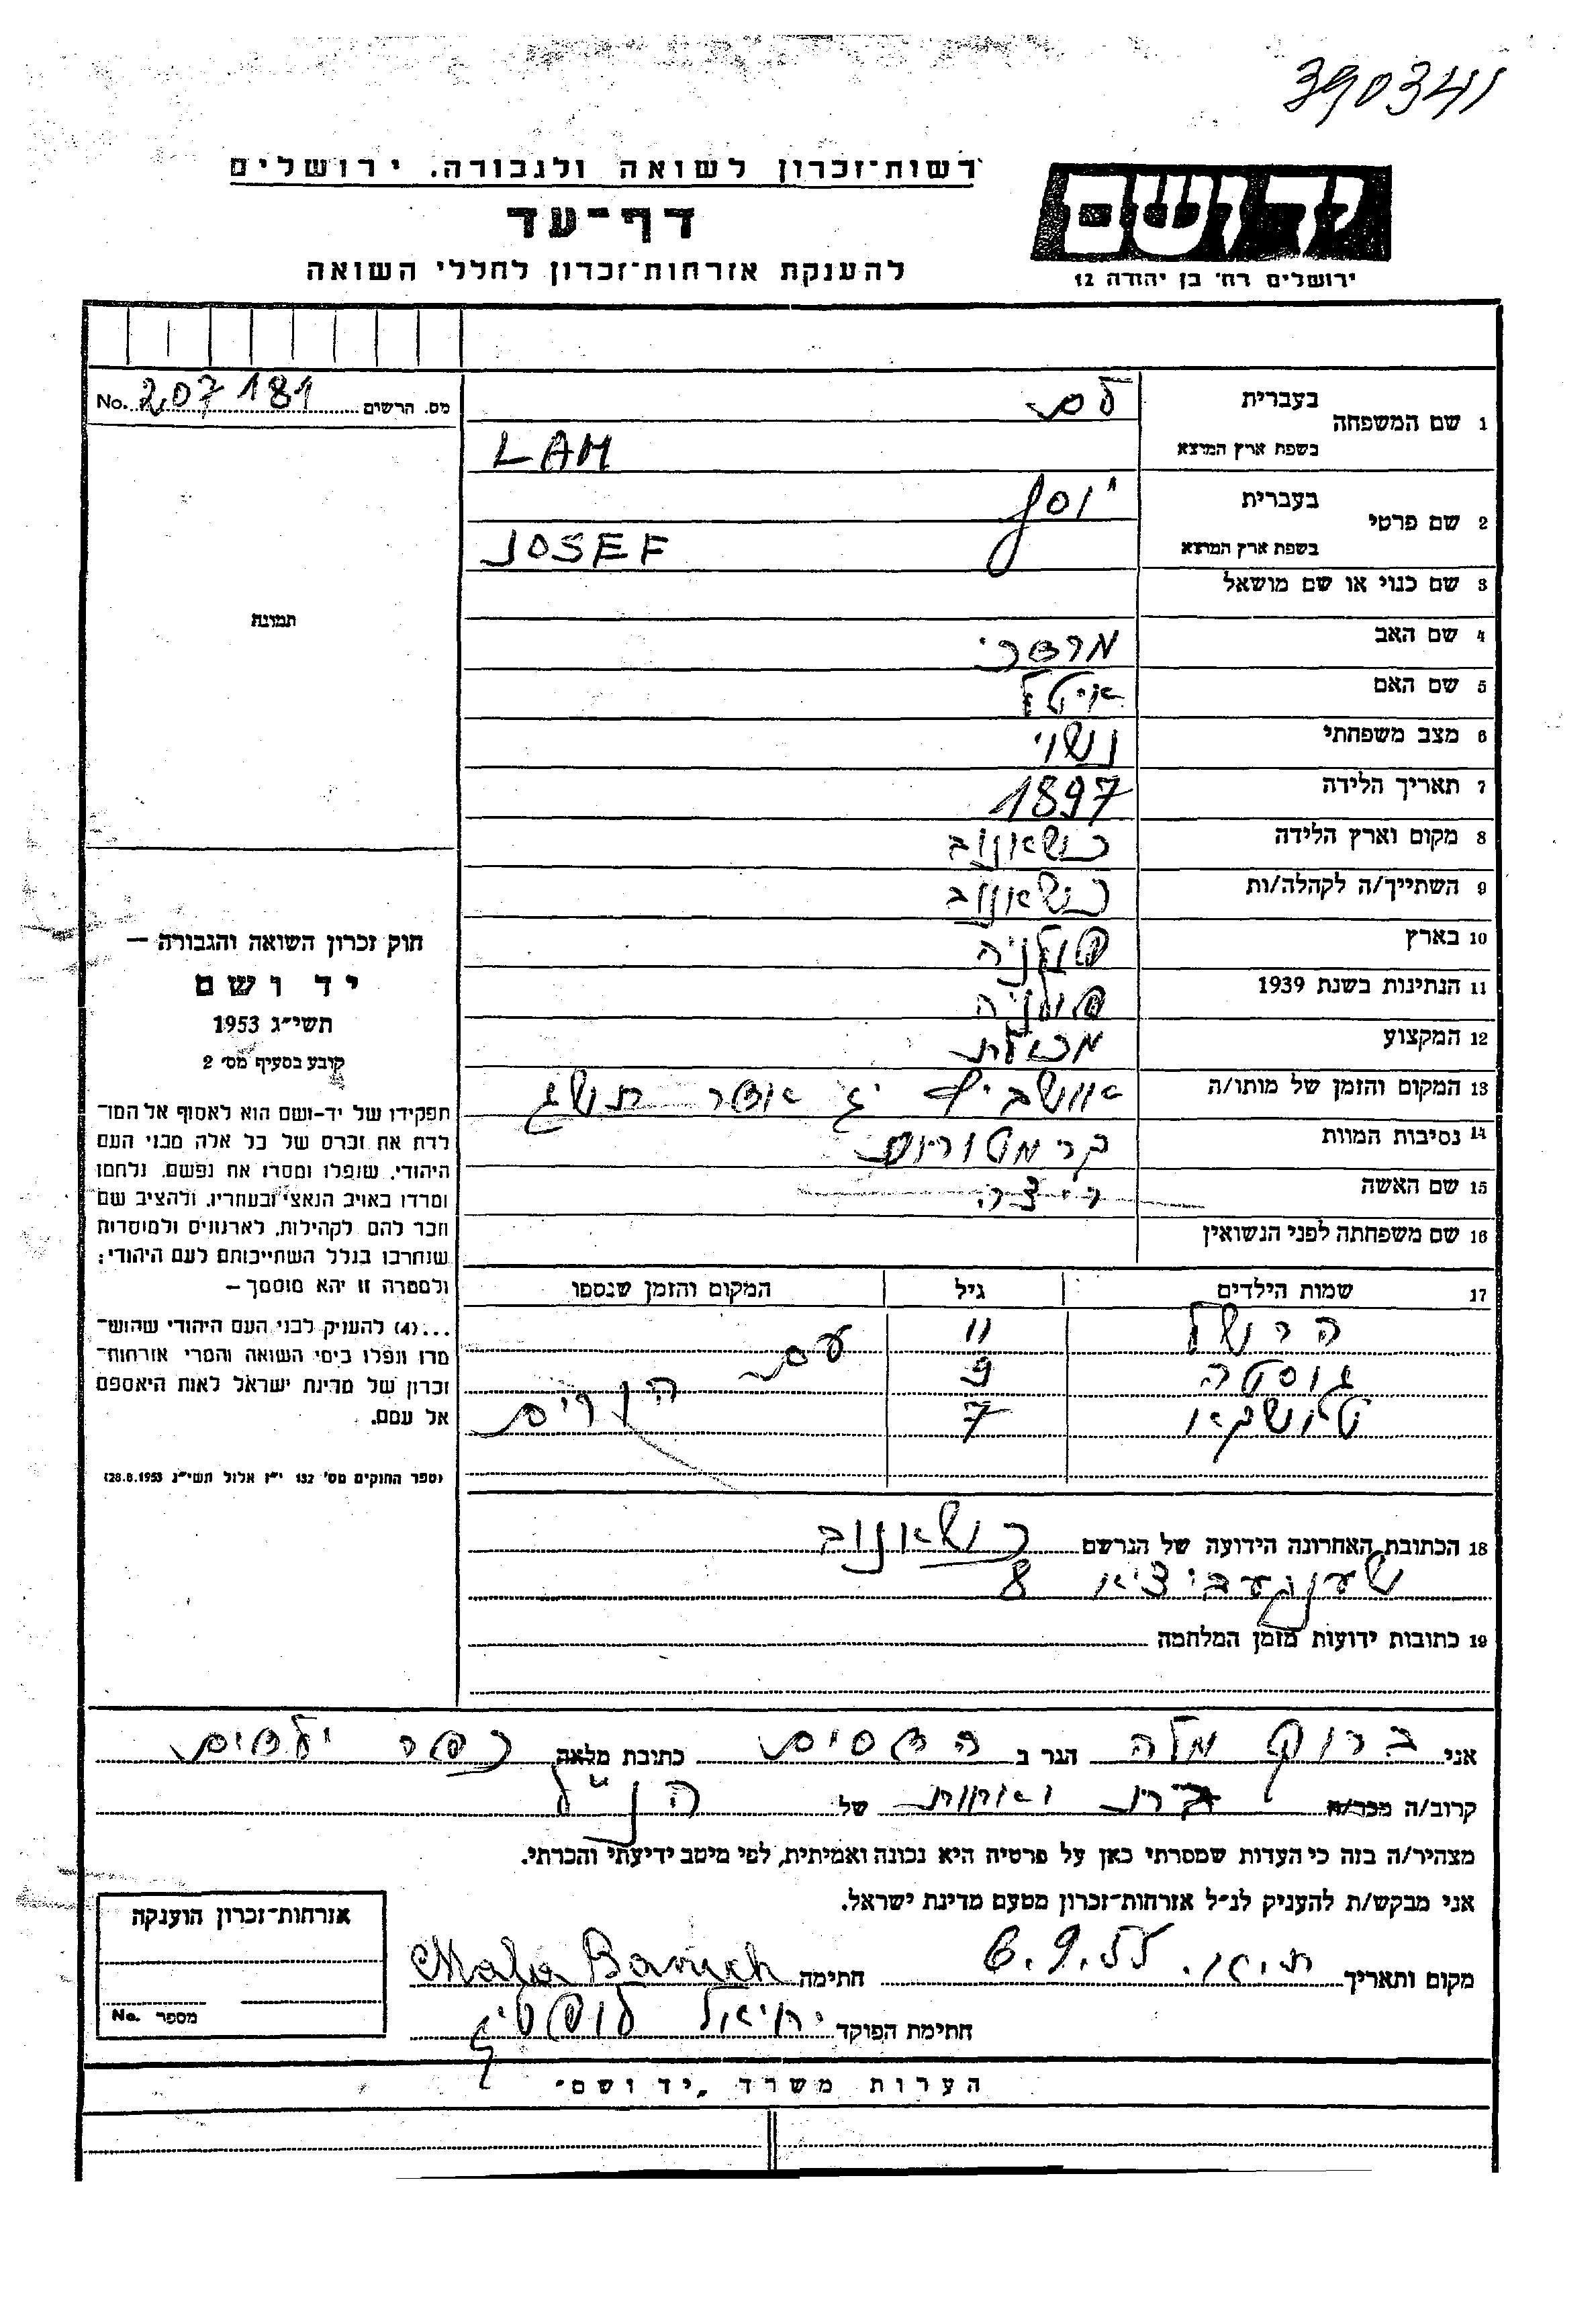 390341
יד ושם
ירושלים רח' בן יהודה 12
רשות־זכרון לשואה ולגבורה. ירושלים
דף־עד
להענקת אזרחות־זכרון לחללי השואה
מס. הרשום 207181 No.
1 שם המשפחה בעברית לם
בשפת ארץ המוצא LAM
2 שם פרטי בעברית יוסף
בשפת ארץ המוצא JOSEF
3 שם כנוי או שם מושאל
4 שם האב מרדכי
5 שם האם איטל
6 מצב משפחתי נשוי
7 תאריך הלידה 1897
8 מקום וארץ הלידה כשאנוב
9 השתייך/ה לקהלה/ות כשאנוב
10 בארץ פולניה
11 הנתינות בשנת 1939 פולניה
12 המקצוע מכולת
13 המקום והזמן של מותו/ה אושביץ יג אדר תשג
14 נסיבות המוות קרמטוריום
15 שם האשה ריצה
16 שם משפחתה לפני הנשואין
17 שמות הילדים גיל המקום והזמן שנספו
הרשל 11 עם
גוסטה 9 הורים
7
18 הכתובת האחרונה הידועה של הנרשם כשאנוב
8
19 כתובות ידועות מזמן המלחמה
תמונה
חוק זכרון השואה והגבורה —
יד ושם
תשי״ג 1953
קובע בסעיף מס' 2
תפקידו של יד-ושם הוא לאסוף אל המו־
לדת את זכרם של כל אלה מבני העם
היהודי, שנפלו ומסרו את נפשם, נלחמו
ומרדו באויב הנאצי ובעוזריו, ולהציב שם
וזכר להם לקהילות, לארגונים ולמוסדות
שנחרבו בגלל השתייכותם לעם היהודי;
ולמטרה זו יהא מוסמך —
...(4) להעניק לבני העם היהודי שהוש־
מדו ונפלו בימי השואה והמרי אזרחות־
זכרון של מדינת ישראל לאות היאספם
אל עמם.
(ספר החוקים מס' 132 י״ז אלול תשי״ג 28.8.1953)
אני ברוק מלה הגר ב הדסים כתובת מלאה כפר ילדים
קרוב/ה מכר/ה בת ואחות של הנ״ל
מצהיר/ה בזה כי העדות שמסרתי כאן על פרטיה היא נכונה ואמיתית, לפי מיטב ידיעתי והכרתי.
אני מבקש/ת להעניק לנ״ל אזרחות־זכרון מטעם מדינת ישראל.
מקום ותאריך ת.א. 6.9.55 חתימה Mala
חתימת הפוקד יחיאל
אזרחות־זכרון הוענקה
מספר No.
הערות משרד „יד ושם״